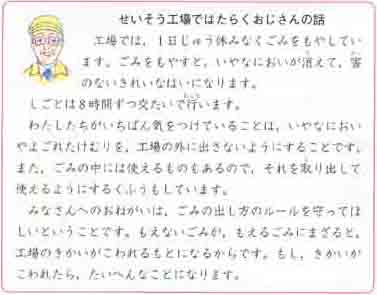 せいそう工場ではたらくおじさんの話
工場では，1日じゅう休みなくごみをもやしてい
ます。ごみをもやすと，いやなにおいが消えて，害
のないきれいなはいになります。
しごとは8時間ずつ交たいで行います。
わたしたちがいちばん気をつけていることは，いやなにおい
やよごれたけむりを，工場の外に出さないようにすることです。
また，ごみの中には使えるものもあるので，それを取り出して
使えるようにするくふうもしています。
みなさんへのおねがいは，ごみの出し方のルールを守ってほ
しいということです。もえないごみが，もえるごみにまざると，
工場のきかいがこわれるもとになるからです。もし，きかいが
こわれたら，たいへんなことになります。